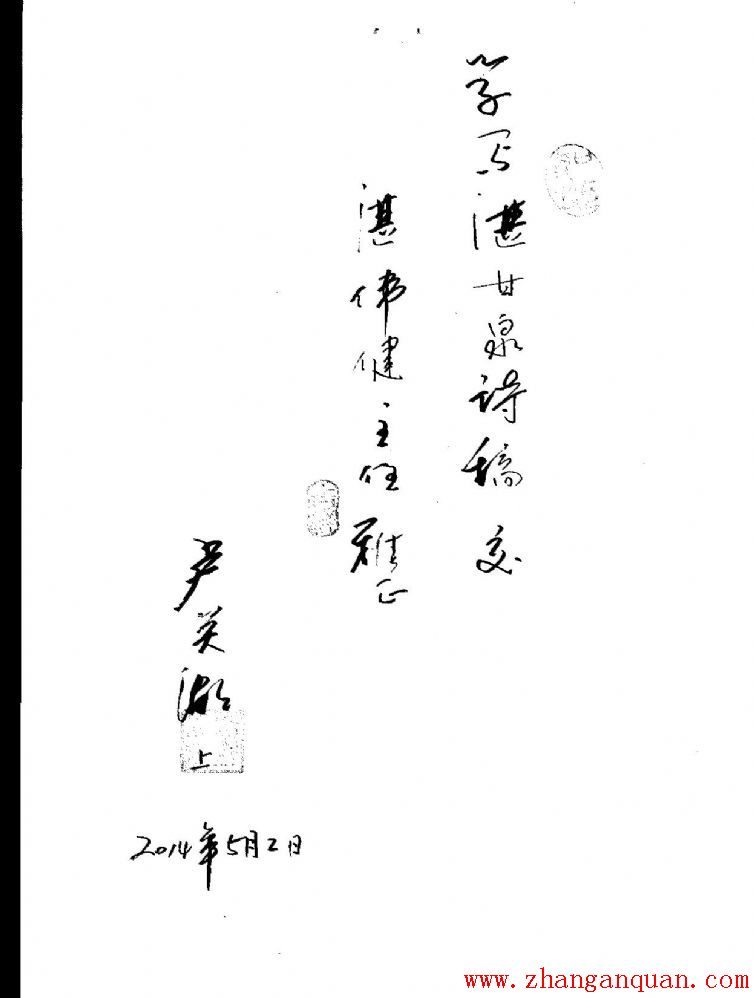 学写湛甘泉诗稿交
湛伟健主任雅正
尹英
上
2014年5月2日
www.zhanganquan.com